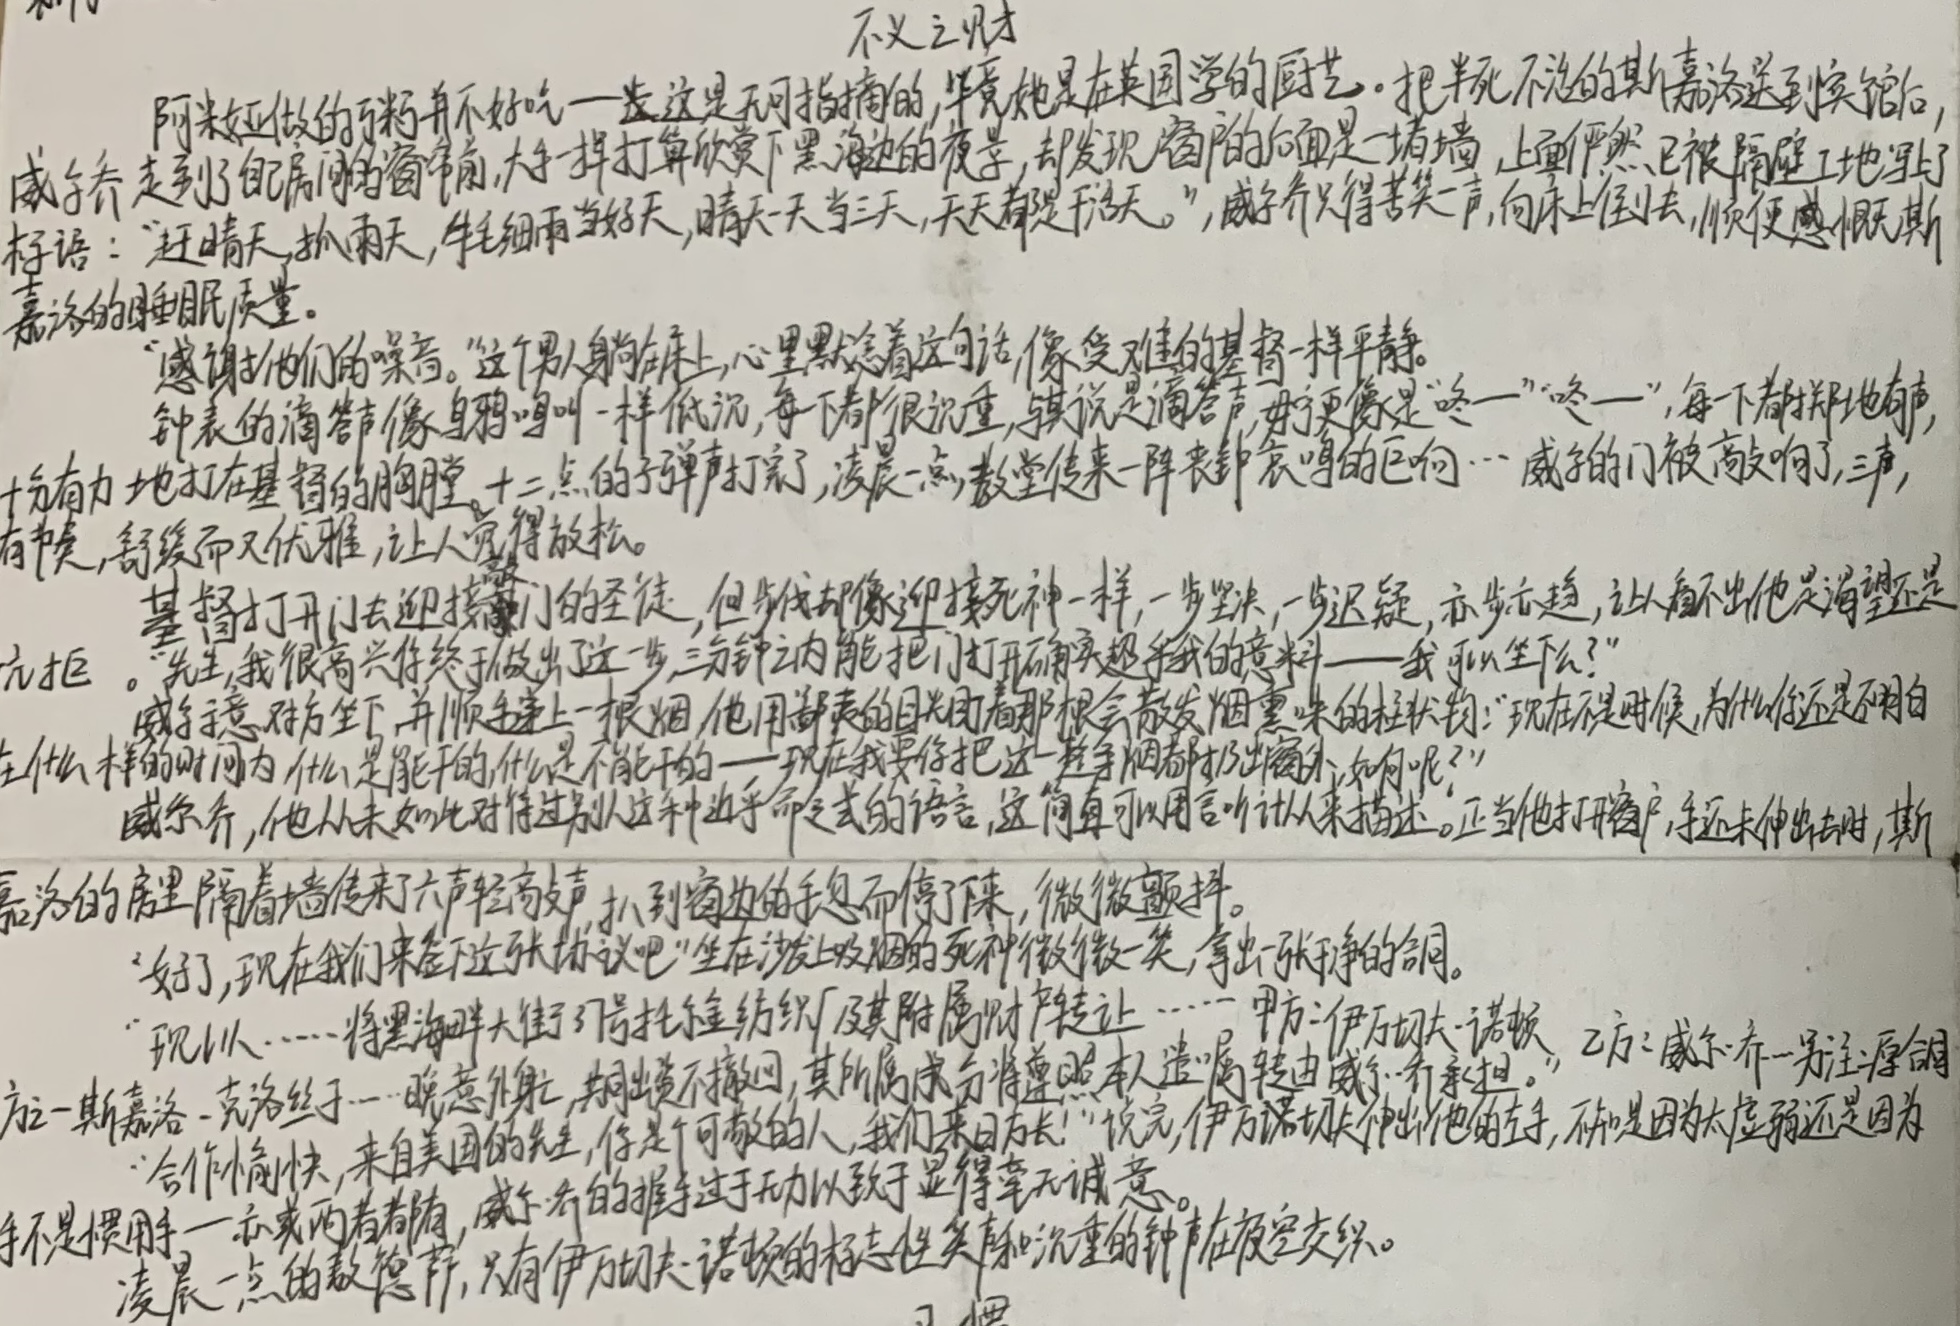 不义之财
阿米娅做的可粉并不好吃——这是无可指摘的，毕竟她是在英国学的厨艺。把半死不活的斯嘉洛送到宾馆后，
威尔·乔走到了自己房间的窗帘前，大手一挥打算欣赏下黑海边的夜景，却发现窗户的后面是一堵墙，上面俨然已被隔壁工地写上了
标语：“赶晴天，抓雨天，牛毛细雨当好天，晴天一天当三天，天天都是干活天。”，威尔·乔只得苦笑一声，向床上倒去，顺便感慨斯
嘉洛的睡眠质量。
“感谢他们的噪音。”这个男人躺在床上，心里默念着这句话，像受难的基督一样平静。
钟表的滴答声像乌鸦鸣叫一样低沉，每下都很沉重，与其说是滴答声，毋宁更像是“咚——”“咚——”，每一下都掷地有声，
十分有力地打在基督的胸膛。十二点的子弹声打完了，凌晨一点，教堂传来一阵丧钟哀鸣的巨响…威尔的门被敲响了，三声，
有节奏，舒缓而又优雅，让人觉得放松。
基督打开门去迎接敲门的圣徒，但步伐却像迎接死神一样，一步坚决，一步迟疑，亦步亦趋，让人看不出他是渴望还是
抗拒。“先生，我很高兴你终于做出了这一步，三分钟之内能把门打开确实超乎我的意料——我可以坐下么？”
威尔示意对方坐下，并顺手递上一根烟，他用鄙夷的目光盯着那根会散发烟熏味的柱状物：“现在不是时候，为什么你还是不明白
在什么样的时间内，什么是能干的，什么是不能干的——现在我要你把这一整条烟都扔出窗外，如何呢？”
威尔·乔，他从未如此对待过别人这种近乎命令式的语言，这简直可以用言听计从来描述。正当他打开窗户，手还未伸出去时，斯
嘉洛的房里隔着墙传来了六声轻敲声，扒到窗边的手忽而停了下来，微微颤抖。
“好了，现在我们来签下这张协议吧”坐在沙发上吸烟的死神微微一笑，拿出一张干净的合同。
“现以……将黑海畔大街37号托尔金纺织厂及其附属财产转让……甲方：伊万切夫·诺顿 乙方：威尔·乔…另注：原合同
方之一斯嘉洛-克洛丝于……晚意外身亡，共同出资不撤回，其所属成分将遵照本人遗嘱转由威尔·乔承担。”
“合作愉快，来自美国的先生，你是个可敬的人，我们来日方长！”说完，伊万诺切夫伸出他的左手，不知是因为太虚弱还是因为
手不是惯用手——亦或两者都有，威尔·乔的握手过于无力以致于显得毫无诚意。
凌晨一点的敖德萨，只有伊万切夫·诺顿的标志性笑声和沉重的钟声在夜空交织。